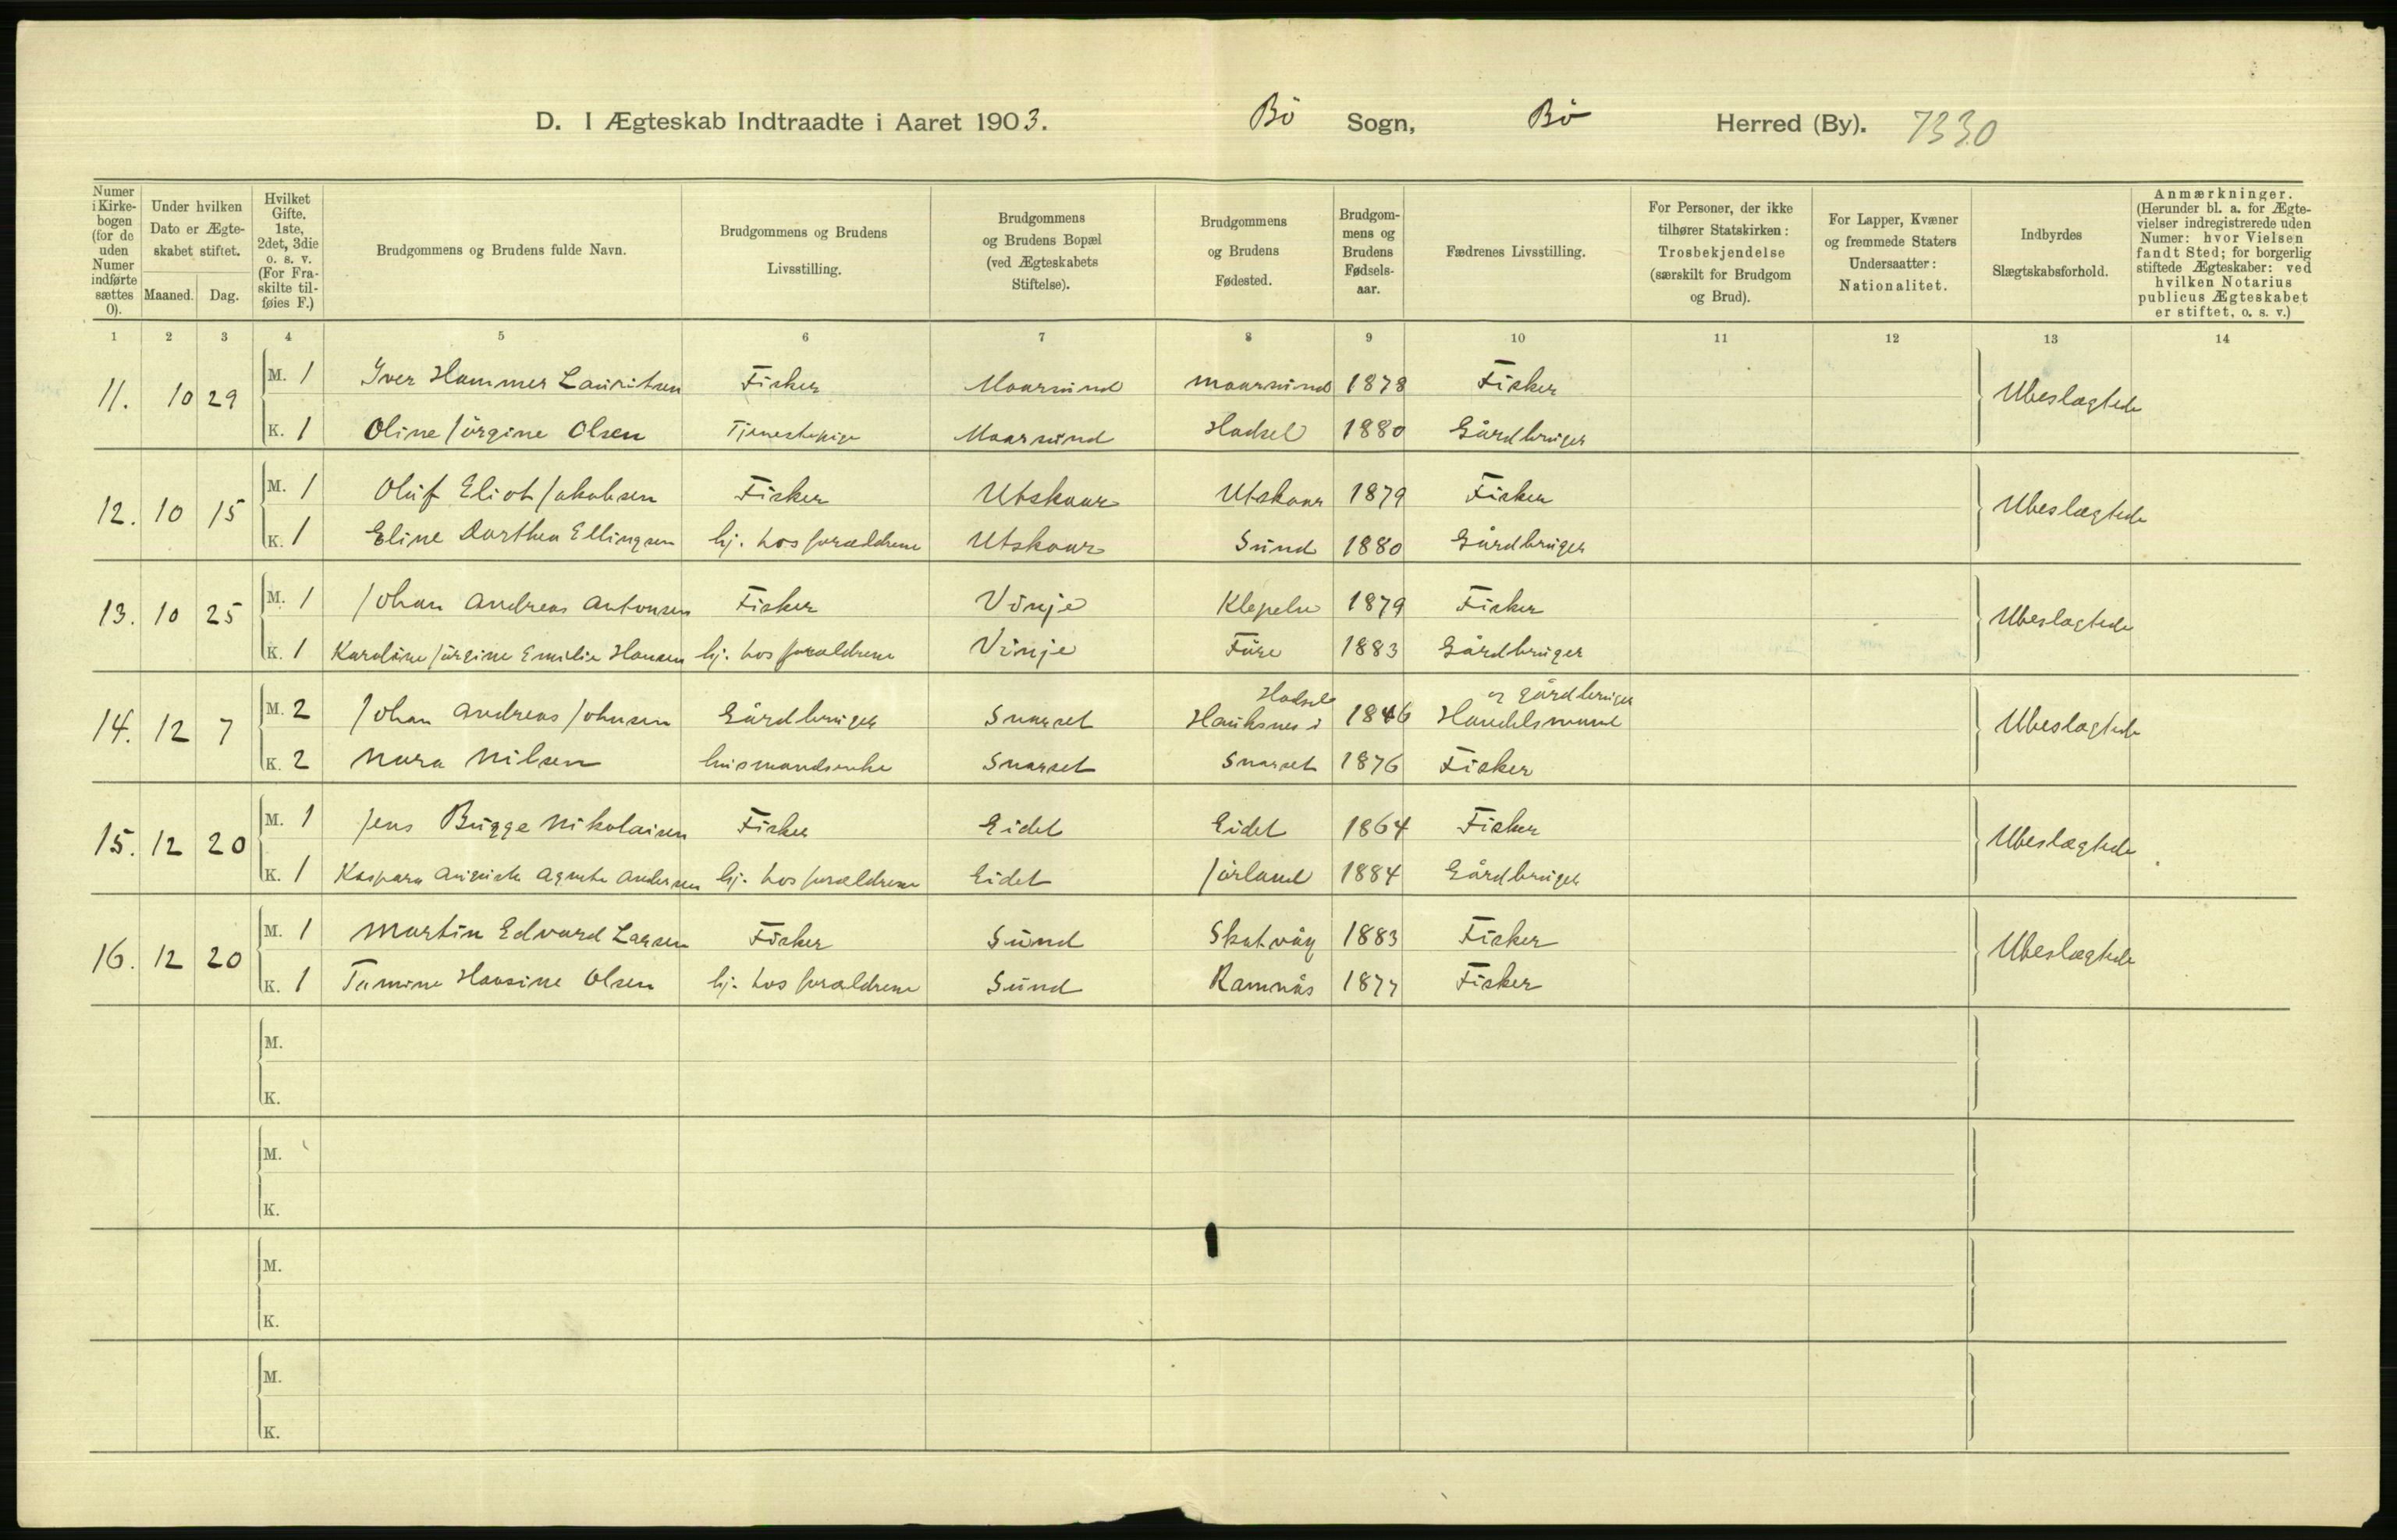 D. I Ægteskab Indtraadte i Aaret 1903. Bö Sogn, Bö Herred (By). 7330
Numer i Kirkebogen (for de uden Numer indførte sættes 0).
Under hvilken Dato er Ægteskabet stiftet.
Maaned. Dag.
Hvilket Gifte. 1ste, 2det, 3die o. s. v. (For Fraskilte tilføies F.)
Brudgommens og Brudens fulde Navn.
Brudgommens og Brudens Livsstilling.
Brudgommens og Brudens Bopæl (ved Ægteskabets Stiftelse).
Brudgommens og Brudens Fødested.
Brudgommens og Brudens Fødselsaar.
Fædrenes Livsstilling.
For Personer, der ikke tilhører Statskirken: Trosbekjendelse (særskilt for Brudgom og Brud).
For Lapper, Kvæner og fremmede Staters Undersaatter: Nationalitet.
Indbyrdes Slægtskabsforhold.
Anmærkninger. (Herunder bl. a. for Ægtevielser indregistrerede uden Numer: hvor Vielsen fandt Sted; for borgerlig stiftede Ægteskaber: ved hvilken Notarius publicus Ægteskabet er stiftet, o. s. v.)
1 2 3 4 5 6 7 8 9 10 11 12 13 14
11. 10 29 M. 1 Iver Hammer Lauritsen Fisker Maarsund Maarsund 1878 Fisker Ubeslægtede
K. 1 Oline Jörgine Olsen Tjenestepige Maarsund Hadsel 1880 Gårdbruger
12. 10 15 M. 1 Oluf Eliot Jakobsen Fisker Utskaar Utskaar 1879 Fisker Ubeslægtede
K. 1 Eline Dorthea Ellingsen hj. hos forældrene Utskaar Sund 1880 Gårdbruger
13. 10 25 M. 1 Johan Andreas Antonsen Fisker Vinje 1879 Fisker Ubeslægtede
K. 1 Karoline Jörgine Emilie Hansen hj. hos forældrene Vinje Före 1883 Gårdbruger
14. 12 7 M. 2 Johan Andreas Johnsen Gårdbruger Snarset Hauknes i Hadsel 1846 Handelsmand og gårdbruger Ubeslægtede
K. 2 Nora Nilsen husmandsenke Snarset Snarset 1876 Fisker
15. 12 20 M. 1 Jens Bugge Nikolaisen Fisker Eidet Eidet 1864 Fisker Ubeslægtede
K. 1 Kaspara Auguste Agnete Andersen hj. hos forældrene Eidet Jörland 1884 Gårdbruger
16. 12 20 M. 1 Martin Edvard Larsen Fisker Sund Skatvåg 1883 Fisker Ubeslægtede
K. 1 Tomine Hansine Olsen hj. hos forældrene Sund Ramnås 1877 Fisker
M.
K.
M.
K.
M.
K.
M.
K.